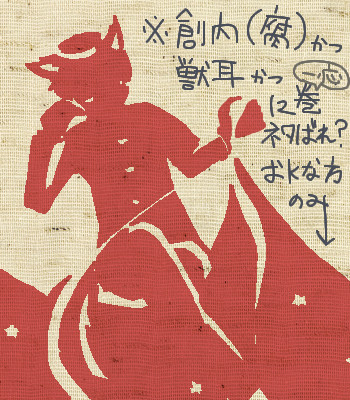 ※創内(腐)かつ
獣耳かつ一応
に巻
ネタばれ?
おKな方
のみ↓